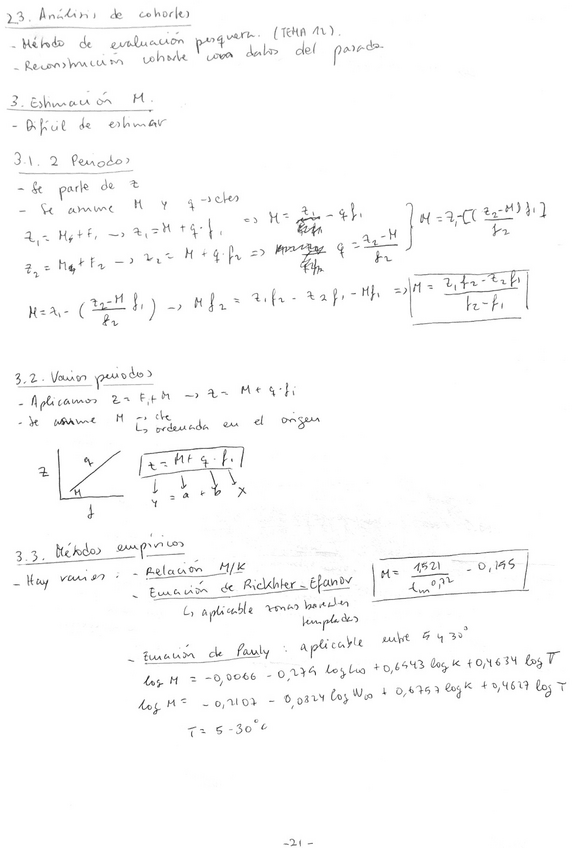 2.3. Análisis de cohortes
- Método de evaluación pesquera. (TEMA 12).
- Reconstrucción cohorte con datos del pasado
3. Estimación M.
- Difícil de estimar
3.1. 2 Periodos
- Se parte de Z
- Se asume M y q → ctes
Z₁ = M + F₁ → Z₁ = M + q·f₁ => M = Z₁ - q f₁
Z₂ = M + F₂ → Z₂ = M + q·f₂ => q = (Z₂-M)/f₂
} M = Z₁-[((Z₂-M)/f₂) f₁]
M = Z₁ - ((Z₂-M)/f₂ f₁) → M f₂ = Z₁f₂ - Z₂f₁ - Mf₁ => M = (Z₁f₂ - Z₂f₁)/(f₂-f₁)
3.2. Varios periodos
- Aplicamos Z = Fᵢ+M → Z = M + q·fᵢ
- Se asume M → cte
↳ ordenada en el origen
Z q M f
Z = M + q·fᵢ
y = a + b x
3.3. Métodos empíricos
- Hay varios: - Relación M/K
- Ecuación de Rickhter-Efanov
M = 1521/tm^0,72 - 0,155
↳ aplicable zonas boreales
templadas
- Ecuación de Pauly: aplicable entre 5 y 30°
log M = -0,0066 - 0,279 log L∞ + 0,6543 log K + 0,4634 log T
log M = -0,2107 - 0,0824 log W∞ + 0,6757 log K + 0,4627 log T
T = 5-30°C
-21-